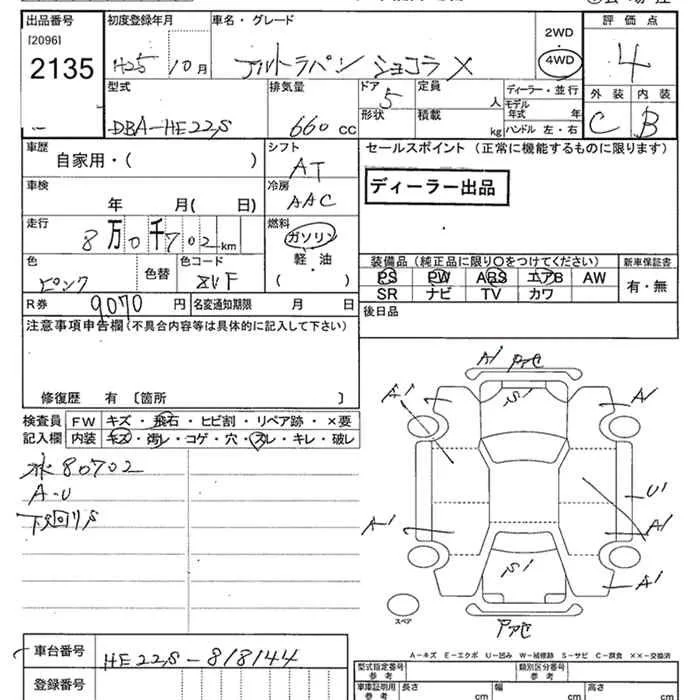 出品番号 初度登録年月 車名・グレード 2WD 評価点
[2096]
2135 H25 10月 アルトラパン ショコラ X 4WD 4
型式 排気量 ドア 定員 ディーラー・並行 外装 内装
DBA-HE22S 660 CC 5 人 モデル年式 年 C B
形状 積載 kg ハンドル 左・右
車歴 シフト セールスポイント (正常に機能するものに限ります)
自家用・( ) AT
ディーラー出品
車検 冷房
年 月( 日) AAC
走行 燃料
8万0千702km ガソリン
軽・油
( )
色 色替 色コード
ピンク ZVF
装備品(純正品に限り○をつけてください) 新車保証書
PS PW ABS エアB AW 有・無
SR ナビ TV カワ
R券 9070円 名変通知期限 月 日
後日品
注意事項申告欄(不具合内容等は具体的に記入して下さい)
修復歴 有 〔箇所 〕
検査員 FW キズ・飛石・ヒビ割・リペア跡・×要
記入欄 内装 キズ・汚レ・コゲ・穴・スレ・キレ・破レ
80702
A-U
下回りS
A1
A1 S1 A1
U1
A1 A1
S1 A1
スペア
A-キズ E-エクボ U-凹み W-補修跡 S-サビ C-腐食 ××-交換済
車台番号 HE22S-818144
登録番号
型式指定番号 参考 類別区分番号 参考
車庫証明用 参考 長さ cm 幅 cm 高さ cm